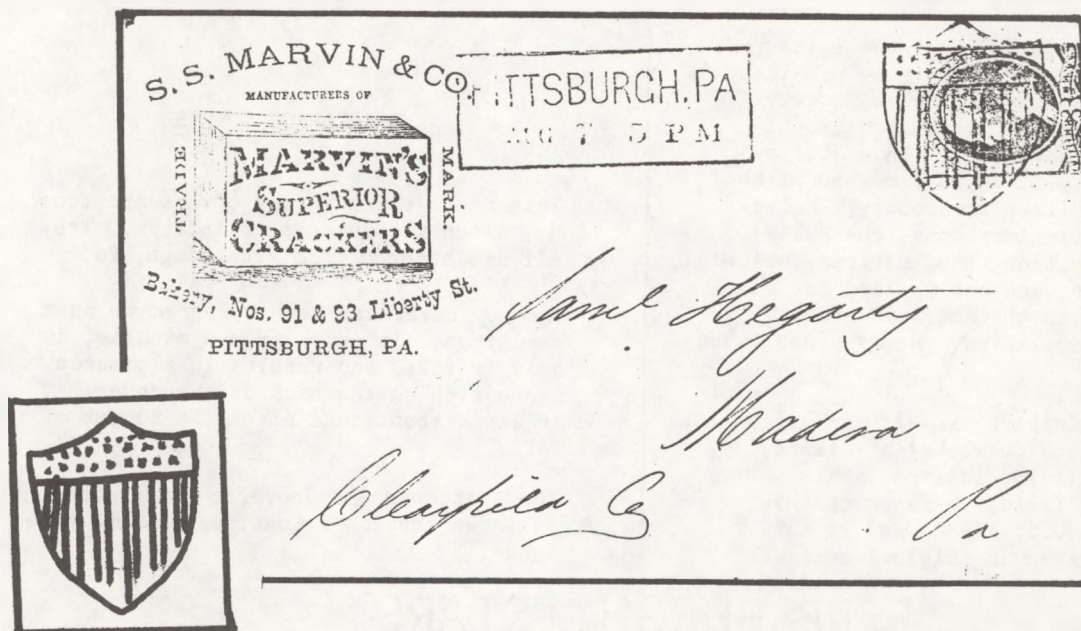 S. S. MARVIN & CO.
MANUFACTURERS OF
TRADE MARK.
MARVIN'S
SUPERIOR
CRACKERS
Bakery, Nos. 91 & 93 Liberty St.
PITTSBURGH, PA.
ITTSBURGH, PA
7 5 PM
Saml Hegarty
Madera
Clearfield Co Pa